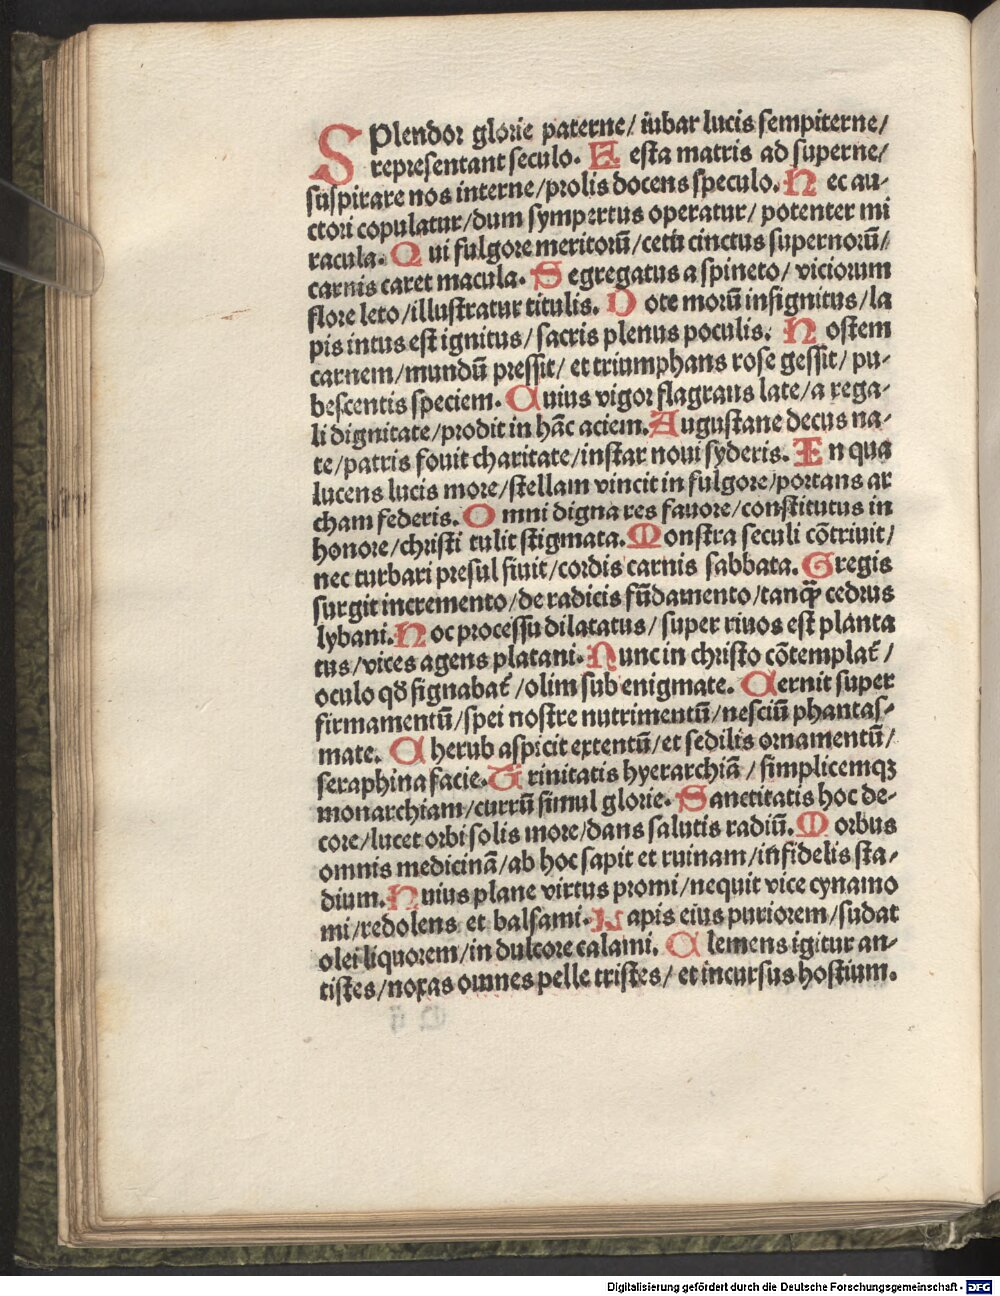 SPlendor glorie paterne/ iubar lucis sempiterne/
representant seculo. Festa matris ad superne/
suspirare nos interne/prolis docens speculo. Hec au-
ctori copulatur/dum sympertus operatur/ potenter mi
racula. Qui fulgore meritorū/cetū cinctus supernorū/
carnis caret macula. Segregatus a spineto/ viciorum
flore leto/illustratur titulis. Dote morū insignitus/la
pis intus est ignitus/ sacris plenus poculis. Hostem
carnem/mundū pressit/ et triumphans rose gessit/ pu-
bescentis speciem. Cuius vigor flagrans late/a rega-
li dignitate/prodit in hāc aciem. Augustane decus na-
te/patris fouit charitate/instar noui syderis. En qua
lucens lucis more/stellam vincit in fulgore/portans ar
cham federis. Omni digna res fauore/constitutus in
honore/christi tulit stigmata. Monstra seculi cōtriuit/
nec turbari presul siuit/cordis carnis sabbata. Gregis
surgit incremento/de radicis fūdamento/tanq̄ cedrus
lybani. Hoc processu dilatatus/ super riuos est planta
tus/vices agens platani. Nunc in christo cōtemplat᷑ /
oculo qđ signabat᷑ /olim sub enigmate. Cernit super
firmamentū/spei nostre nutrimentū/nesciū phantas-
mate. Cherub aspicit extentū/et sedilis ornamentū/
seraphina facie. Trinitatis hyerarchiā / simplicemqꝫ
monarchiam/currū simul glorie. Sanctitatis hoc de-
core/lucet orbi solis more/dans salutis radiū. Morbus
omnis medicinā/ab hoc sapit et ruinam/infidelis sta-
dium. Huius plane virtus promi/nequit vice cynamo
mi/redolens et balsami. Lapis eius puriorem/sudat
olei liquorem/in dulcore calami. Clemens igitur an-
tistes/noxas omnes pelle tristes/ et incursus hostium.
Digitalisierung gefördert durch die Deutsche Forschungsgemeinschaft - DFG